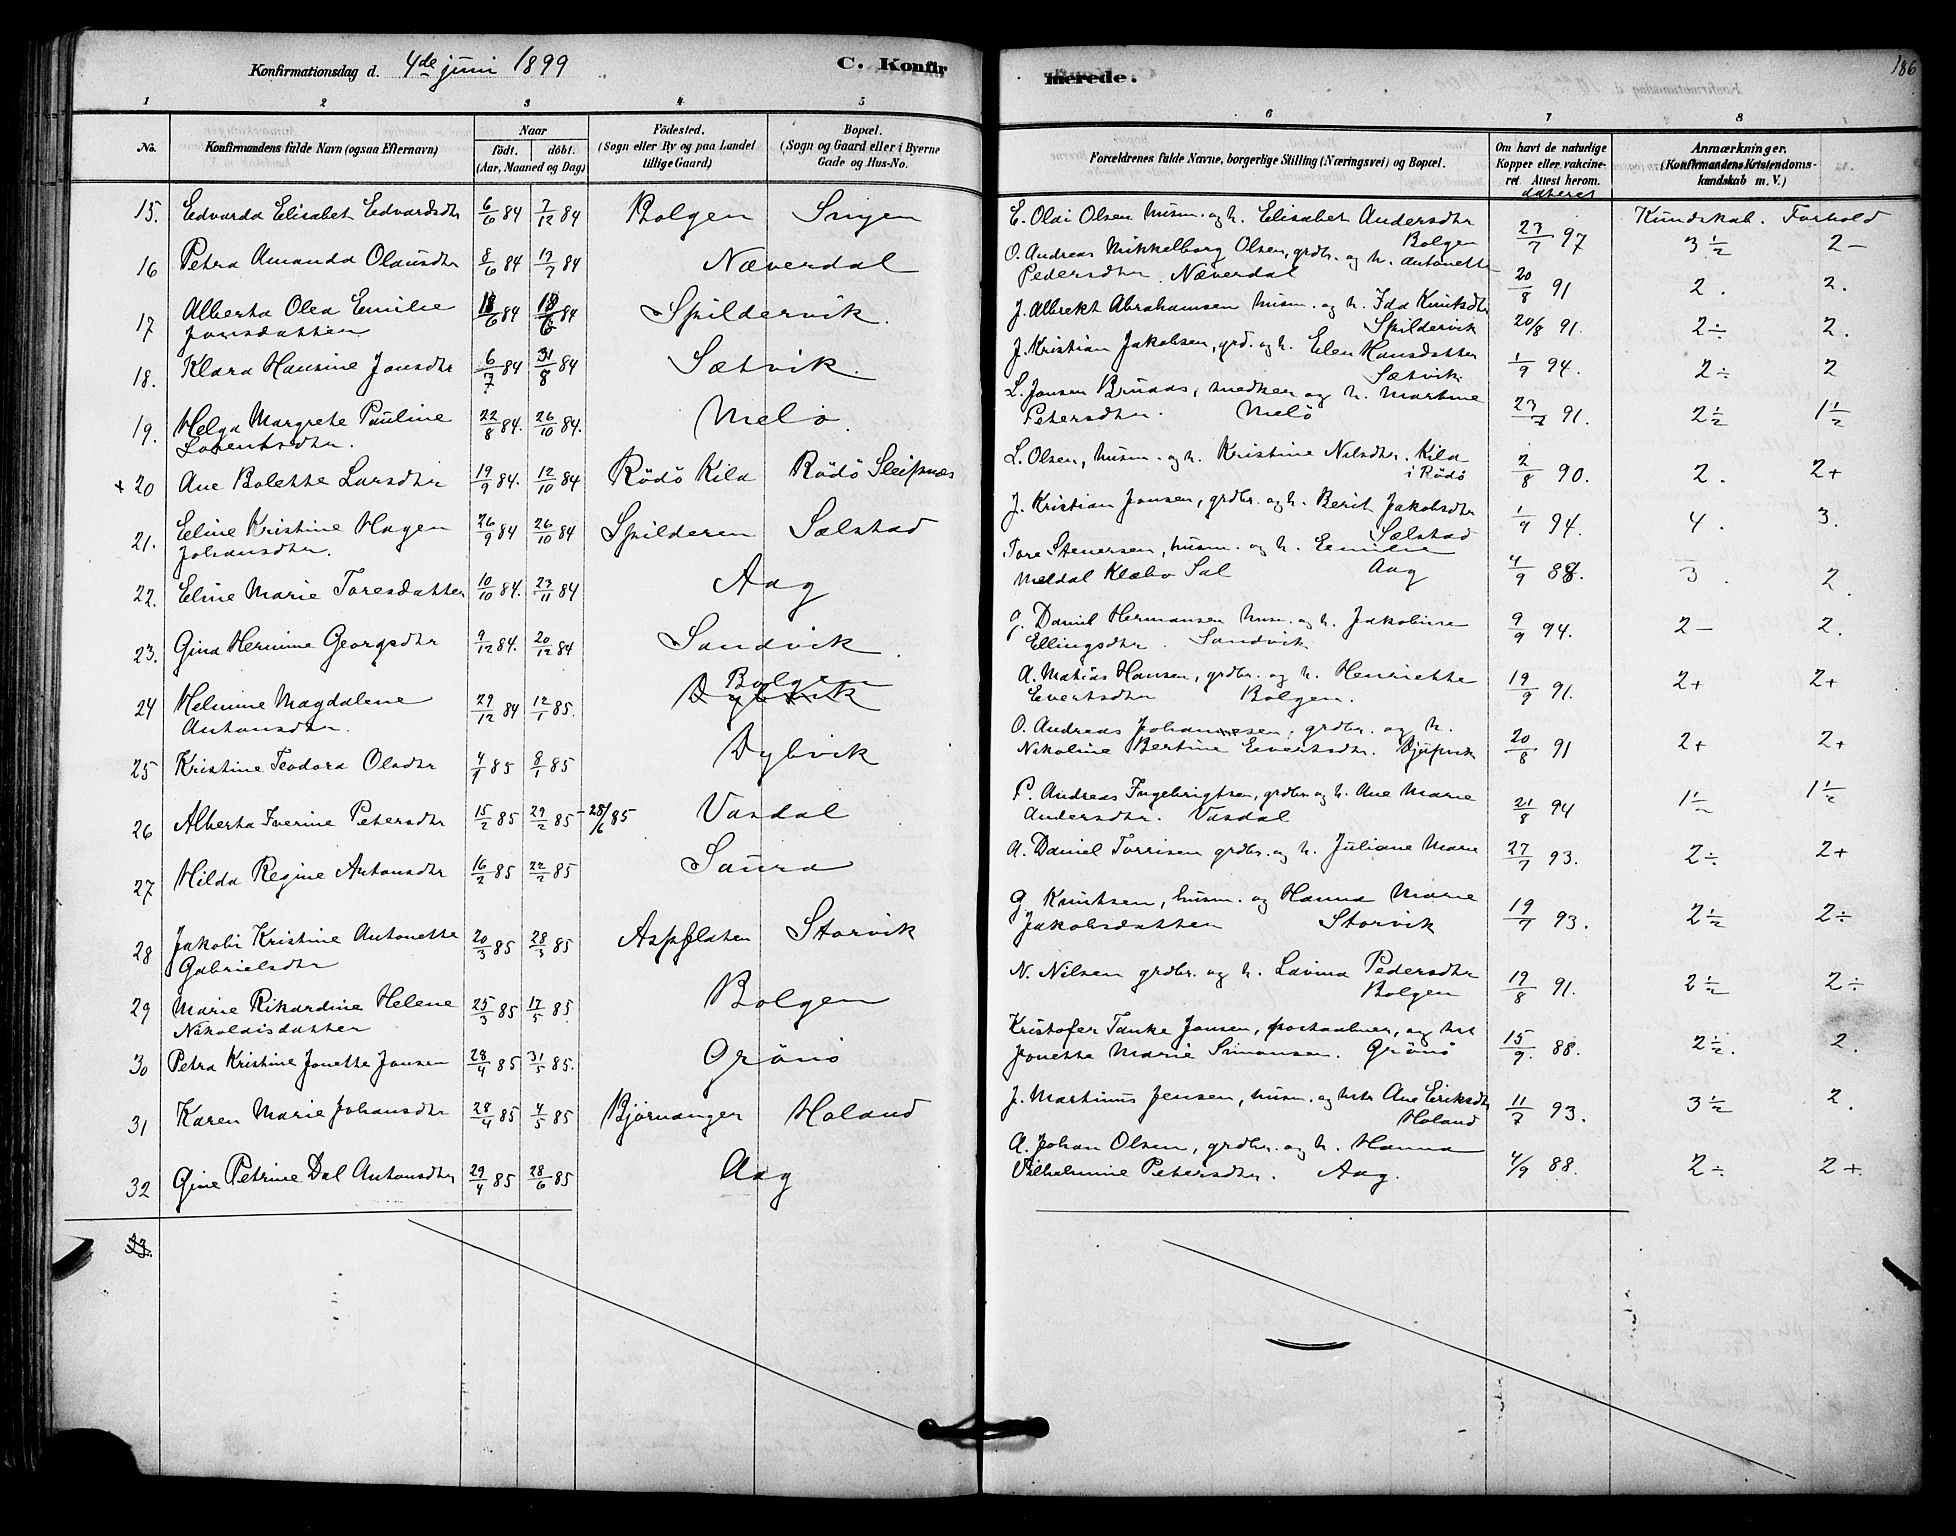 Konfirmationsdag d. 4de juni 1899
C. Konfirmerede.
186
1 2 3 4 5 6 7 8
No. Konfirmandens fulde Navn (ogsaa Efternavn) Naar født. døbt. (Aar, Maaned og Dag) Fødested. (Sogn eller By og paa Landet tillige Gaard) Bopæl. (Sogn og Gaard eller i Byerne Gade og Hus-No.) Forældrenes fulde Navne, borgerlige Stilling (Næringsvei) og Bopæl. Om havt de naturlige Kopper eller vakcineret. Attest herom. dateret Anmærkninger. (Konfirmandens Kristendomskundskab m. V.)
Kundskab. Forhold
15. Edvarda Elisabet Edvardsdtr 6/6 84 7/12 84 Bolgen E. Olai Olsen husm. og h. Elisabet Andersdtr Bolgen 23/7 97 3½ 2-
16 Petra Amanda Olausdtr 8/6 84 Næverdal O. Andreas Mikkelborg Olsen, grdbr. og h. Antonette Pedersdtr. Næverdal 20/8 91 2. 2.
17 Alberta Olea Emilie Jonsdatter 18/6 84 Spildervik. J. Albrekt Abrahamsen husm. og h. Ida Knutsdtr Spildervik 20/8 91. 2÷ 2.
18. Klara Hansine Jonsdtr 6/7 84 31/8 84 Sætvik. J. Kristian Jakobsen, grd. og h. Elen Hansdatter Sætvik. 1/9 94. 2÷ 2
19. Helga Margrete Pauline Lorentsdtr. 22/8 84. 26/10 84. Melø. L. Jonsen Bruaas, snedker og h. Martine Petersdtr. Melö 23/7 91. 2½ 1½
+ 20 Ane Bolette Larsdtr 19/9 84. 12/10 84 Rödö Kila Rödö Sleipnæs L. Olsen, husm. og h. Kristine Nilsdtr. Kila i Rödö 2/8 90. 2. 2+
21. Eline Kristine Hagen Johansdtr. 26/9 84 26/10 84 Spilderen Salstad J. Kristian Jonsen, grdbr. og h. Berit Jakobsdtr Salstad 1/9 94. 4. 3.
22. Eline Marie Toresdatter 10/10 84. 23/11 84 Aag Tore Stenersen, husm. og h. Emilie Meldal Klæbo Sal Aag 4/9 88. 3. 2.
23. Gina Hermine Georgsdtr 9/12 84. 20/12 84 Sandvik. G. Daniel Hermansen husm. og h. Jakobine Ellingsdtr. Sandvik. 9/9 94. 2- 2.
24 Helmine Magdalene Antonsdtr. 29/12 84 12/1 85. Bolgen Dybvik A. Matias Hansen, grdbr. og h. Henriette Evertsdtr Bolgen. 19/9 91. 2+ 2+
25 Kristine Teodora Olsdtr 4/1 85 8/1 85 Dybvik O. Andreas Johannesen, grdbr. og h. Nikoline Bertine Eivertsdtr. Djupvik 20/8 91 2+ 2+
26 Alberta Iverine Petersdtr 15/2 85 22/2 85 - 28/6 85 Vasdal P. Andreas Ingebrigtsen, grdbr. og h. Ane Marie Andersdtr. Vasdal 21/8 94 1½ 1½
27 Hilda Regine Antonsdtr 16/2 85 22/2 85 Saura A. Daniel Torrisen grdbr. og h. Juliane Marie 27/7 93. 2÷ 2+
28 Jakobi Kristine Antonette Gabrielsdtr 20/3 85 28/3 85 Aspflaten Storvik G. Knutsen, husm. og Hanna Marie Jakobsdatter Storvik 19/7 93. 2½ 2÷
29 Marie Rikardine Helene Nikolaisdatter 25/3 85 17/5 85. Bolgen N. Nilsen grdbr. og h. Lavina Pedersdtr Bolgen 19/8 91. 2½ 2÷
30 Petra Kristine Jonette Jonsen 28/4 85 31/5 85. Grönö Kristofer Tanke Jonsen, postaabner, og hst Jonette Marie Simonsen. Grönö 15/9. 88. 2½. 2.
31 Karen Marie Johansdtr 28/4 85 4/5 85 Bjørnanger Holand J. Martinus Jensen, husm. og hst Ane Eriksdtr Holand 11/7 93. 3½ 2.
32 Gine Petrine Dal Antonsdtr 29/4 85 28/6 85 Aag A. Johan Olsen, grdbr. og h. Hanna Vilhelmine Petersdtr. Aag. 4/9 88. 2÷ 2+
33.